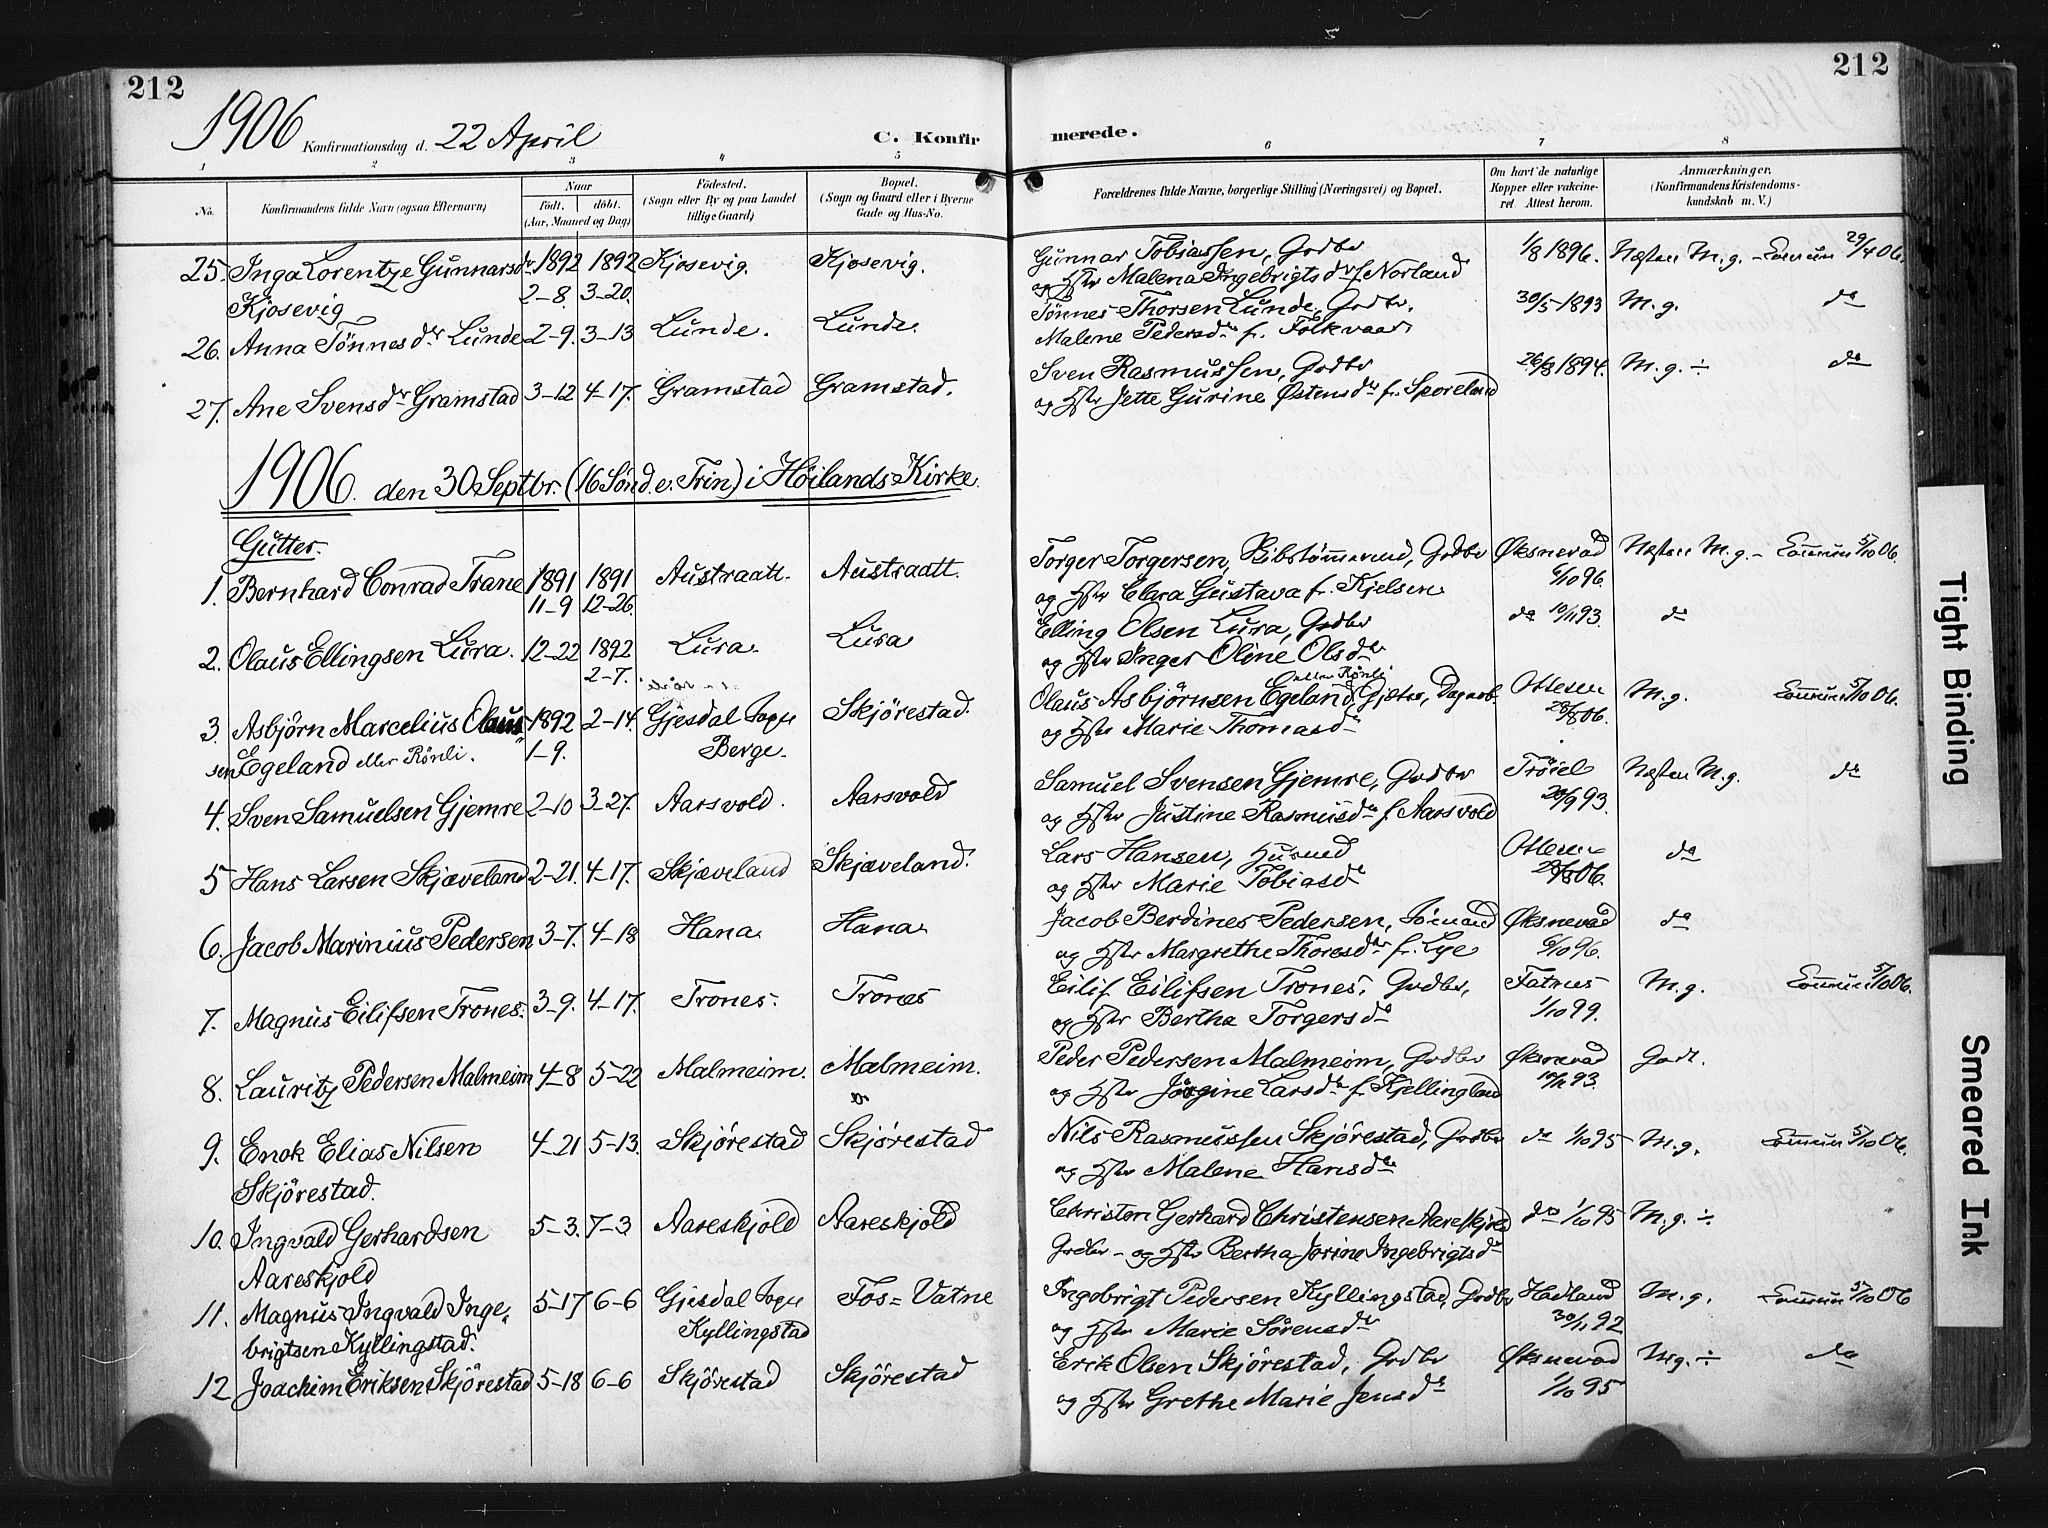 212
212
1906 Konfirmationsdag d. 22 April
C. Konfir
merede.
1 2 3 4 5 6 7 8
No.
Konfirmandens fulde Navn (ogsaa Efternavn)
Naar
født. døbt.
(Aar, Maaned og Dag)
Fødested.
(Sogn eller By og paa Landet
tillige Gaard)
Bopæl.
(Sogn og Gaard eller i Byerne
Gade og Hus-No.
Forældrenes fulde Navne, borgerlige Stilling (Næringsvei) og Bopæl.
Om havt de naturlige
Kopper eller vakcine-
ret. Attest herom.
Anmærkninger.
(Konfirmandens Kristendoms-
kundskab m. V.)
25. Inga Lorentze Gunnarsdr 1892 1892 Kjosevig. Kjosevig. Gunnar Tobiassen, Grdbr 1/8 1896. Næsten M.g. - 29/4 06.
Kjosevig 2-8. 3-20. og Hstr Malena Ingebrigtsdr f. Norland
26. Anna Tønnesdr Lunde 2-9. 3-13 Lunde. Lunde. Tønnes Thorsen Lunde, Grdbr. 30/5-1893 M.g. do
Malene Pedersdr f. Folkvaar
27. Ane Svensdr Gramstad 3-12 4-17. Gramstad Gramstad. Sven Rasmussen, Grdbr 26/8 1894. M.g. ÷ do
og Hstr Jette Gurine Østensdr f. Sporeland
1906. den 30 Septbr. (16 Sønd. e. Trin) i Høilands Kirke.
Gutter.
1. Bernhard Conrad Trane 1891 1891 Austraatt. Austraatt. Torger Torgersen, Grdbr Øksnevad Næsten M.g. - 5/10 06.
11-9 12-26. og Hstr Clara Gustava f. Kjelsen 6/10 96.
2. Olaus Ellingsen Lura. 12-22 1892 Lura. Lura Elling Olsen Lura, Grdbr do 10/11 93. do
2-7. og Hstr Inger Oline Olsdr
3. Asbjørn Marcelius Olaus- 1892 2-14. Gjesdal Sogn Skjørestad. Olaus Asbjørnsen Egeland eller Rønli M.g. 5/10 06.
sen Egeland eller Rønli. 1-9. Berge. og Hstr Marie Thomasdr 28/8 06.
4. Sven Samuelsen Gjemre 2-10 3-27. Aarsvold. Aarsvold Samuel Svensen Gjemre, Grdbr Trøiel Næsten M.g. do
og Hstr Justine Rasmusdr f. Aarsvold 20/9 93.
5 Hans Larsen Skjæveland 2-21. 4-17. Skjæveland Skjæveland. Lars Hansen, Husmd do
og Hstr Marie Tobiasdr 28/8 06.
6. Jacob Marinius Pedersen 3-7. 4-18 Hana Hana Jacob Berdines Pedersen, Øksnevad do
og Hstr Margrethe Thoresdr f. Lye 6/10 96.
7. Magnus Eilifsen Trones. 3-9. 4-17. Trones. Trones Eilif Eilifsen Trones, Grdbr, M.g. 5/10 06.
og Hstr Bertha Torgersdr 1/10 99.
8. Lauritz Pedersen Malmeim 4-8 5-22 Malmeim. Malmeim. Peder Pedersen Malmeim, Grdbr Øksnevad Godt.
og Hstr Jørgine Larsdr f. Kjellingland 93.
9. Enok Elias Nilsen 4-21 5-13. Skjørestad Skjørestad Nils Rasmussen Skjørestad, Grdbr do 1/10 95 M.g. 5/10 06.
Skjørestad. og Hstr Malene Hansdr
10. Ingvald Gerhardsen 5-3. 7-3 Aareskjold Aareskjold Christen Gerhard Christensen Aareskjold do 1/10 95 M.g. ÷
Aareskjold Grdbr - og Hstr Bertha Jorine Ingebrigtsdr
11. Magnus Ingvald Inge- 5-17 6-6 Gjesdal Sogn Fos=Vatne Ingebrigt Pedersen Kyllingstad, Grdbr Hadland M.g. 5/10 06
brigtsen Kyllingstad. Kyllingstad og Hstr Marie Sørensdr 30/11 92
12 Joachim Eriksen Skjørestad 5-18 6-6 Skjørestad Skjørestad Erik Olsen Skjørestad, Grdbr Øksnevad M.g. ÷ do
og Hstr Grethe Marie Jensdr 1/10 95
Tight Binding
Smeared Ink